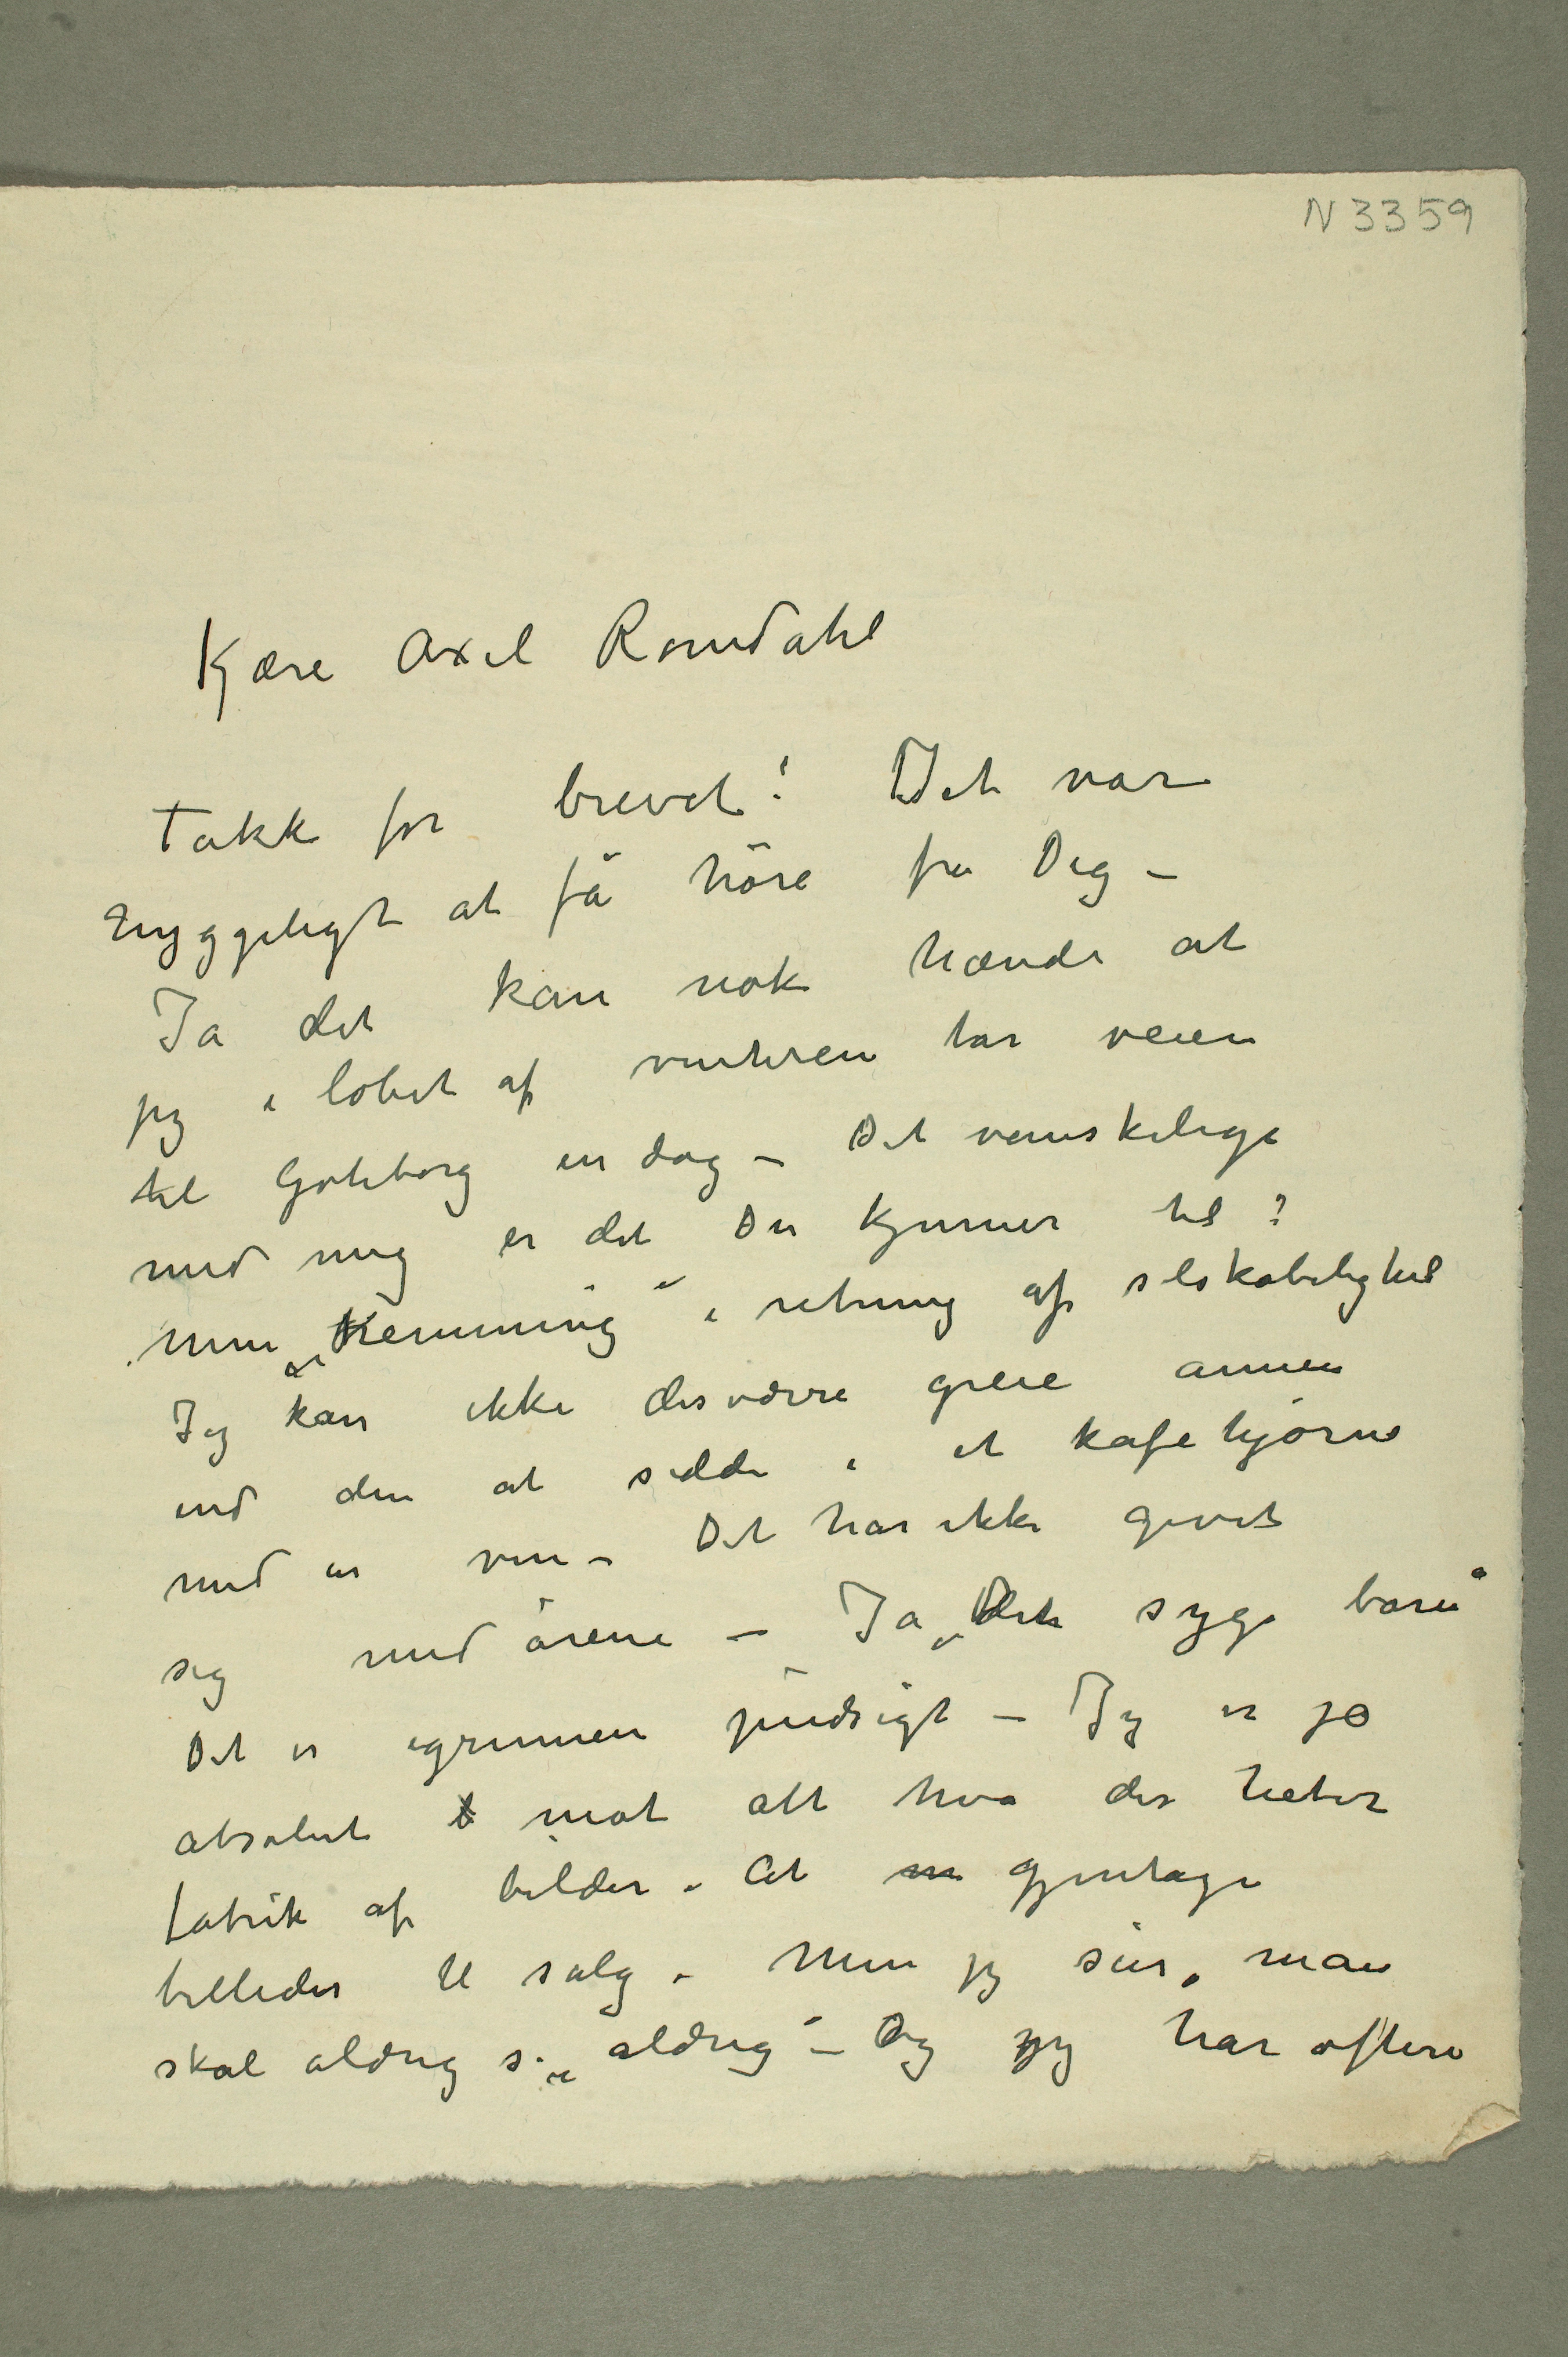 N 3359
Kjære Axel Romdahl
Takk for brevet! Det var
hyggeligt at få höre fra Dig –
Ja det kan nok hænde at
jeg i løbet af vinteren tar veien
til Gøteborg en dag – Det vanskelige
med mig er det Du kjenner til?
min „Hemming“ i retning af selskabelighed
Jeg kan ikke desværre greie annen
end den at sidde i et kafehjørne
med en ven – Det har ikke givet
sig med årene – Ja „Det syge barn“
Det er igrunnen pudsigt – Jeg er jo
absolut mot alt hva der heter
fabrik af bilder – At gjentage
billeder til salg – Men jeg sier, man
skal aldrig si „aldrig“ – Og jeg har oftere